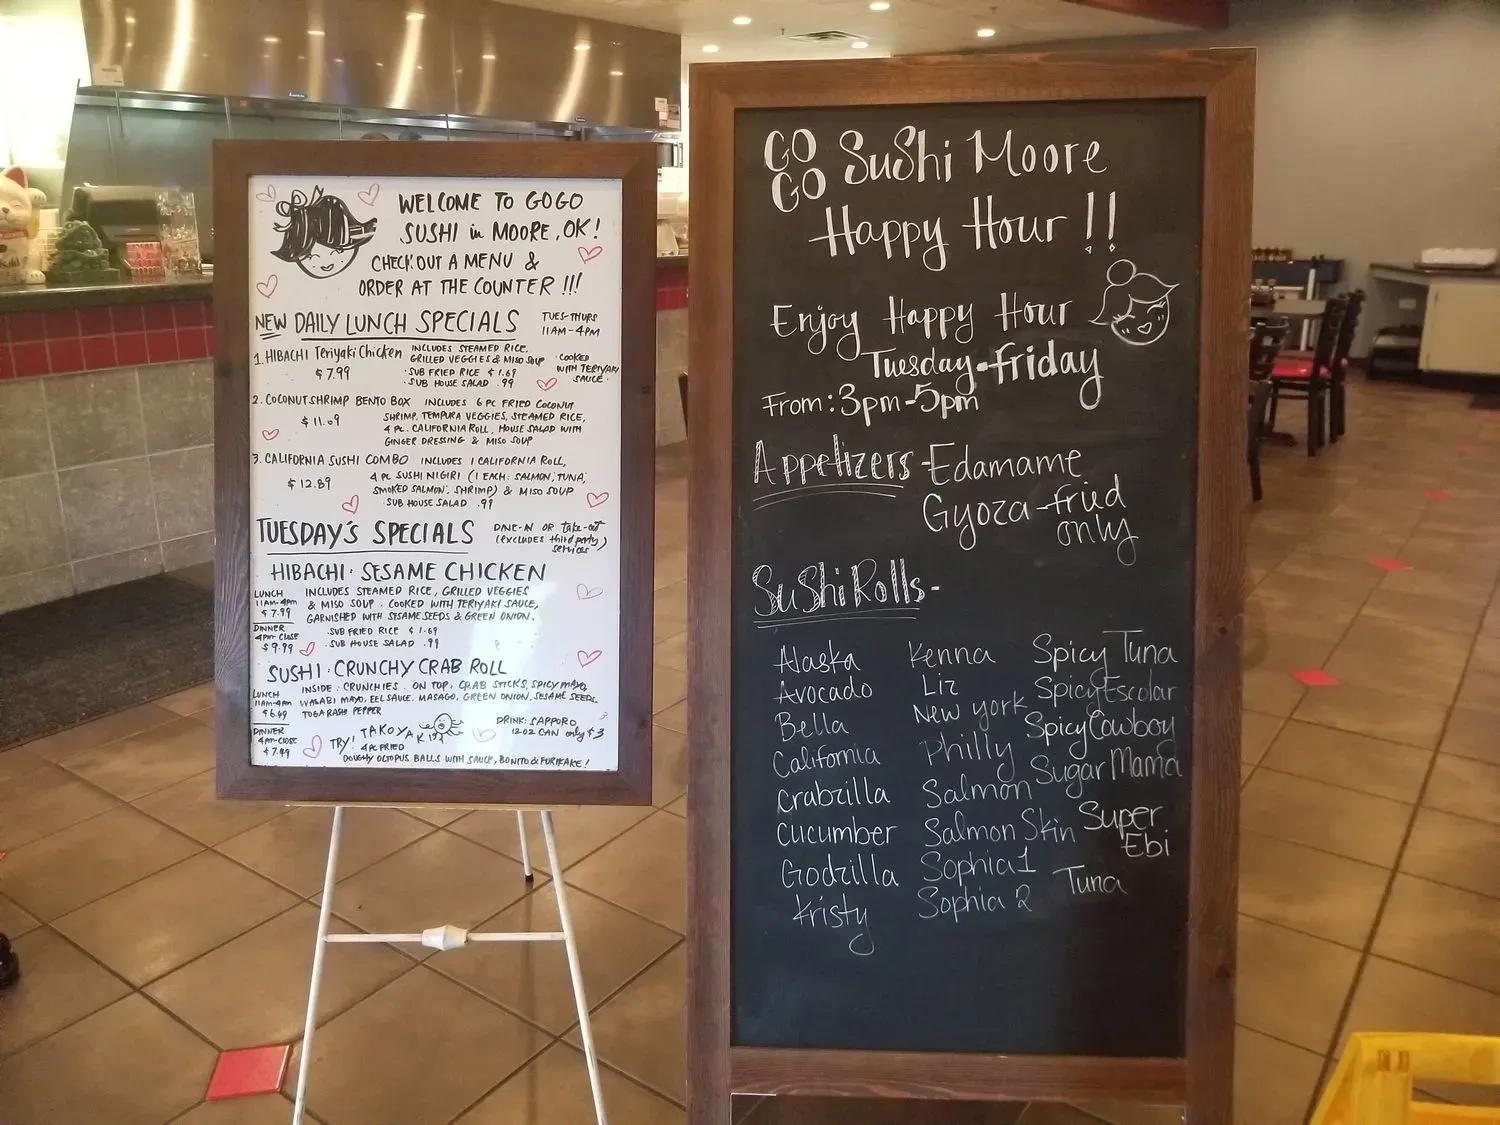 WELCOME TO GOGO
SUSHI in MOORE, OK!
CHECK OUT A MENU &
ORDER AT THE COUNTER !!!
NEW DAILY LUNCH SPECIALS
TUES-THURS
11AM-4PM
1. HIBACHI Teriyaki Chicken
$7.99
INCLUDES STEAMED RICE,
GRILLED VEGGIES & MISO SOUP
· SUB FRIED RICE $1.69
· SUB HOUSE SALAD .99
· COOKED
WITH TERIYAKI
SAUCE.
2. COCONUT SHRIMP BENTO BOX INCLUDES 6 PC FRIED COCONUT
$11.09
SHRIMP, TEMPURA VEGGIES, STEAMED RICE,
4 PC. CALIFORNIA ROLL, HOUSE SALAD WITH
GINGER DRESSING & MISO SOUP
3. CALIFORNIA SUSHI COMBO INCLUDES 1 CALIFORNIA ROLL,
$12.89
4 PC SUSHI NIGIRI (1 EACH: SALMON, TUNA,
SMOKED SALMON, SHRIMP) & MISO SOUP
· SUB HOUSE SALAD .99
TUESDAY'S SPECIALS
DINE-IN OR take-out
(EXCLUDES third party
services)
HIBACHI · SESAME CHICKEN
LUNCH
11AM-4PM
$7.99
DINNER
4PM-CLOSE
$9.99
INCLUDES STEAMED RICE, GRILLED VEGGIES
& MISO SOUP. COOKED WITH TERIYAKI SAUCE,
GARNISHED WITH SESAME SEEDS & GREEN ONION.
· SUB FRIED RICE $1.69
· SUB HOUSE SALAD .99
SUSHI · CRUNCHY CRAB ROLL
LUNCH
11AM-4PM
$6.49
DINNER
4PM-CLOSE
$7.49
INSIDE: CRUNCHIES. ON TOP: CRAB STICKS, SPICY MAYO,
WASABI MAYO, EEL SAUCE, MASAGO, GREEN ONION, SESAME SEEDS.
TOGARASHI PEPPER
TRY! TAKOYAKI
4 PC FRIED
DOUGHY OCTOPUS BALLS WITH SAUCE, BONITO & FURIKAKE!
DRINK: SAPPORO
12 OZ CAN only $3
GO
GO
SuShi Moore
Happy Hour !!
Enjoy Happy Hour
Tuesday-friday
From: 3pm-5pm
Appetizers-Edamame
Gyoza-fried
only
SuShi Rolls-
Alaska
Avocado
Bella
California
Crabzilla
Cucumber
Godzilla
Kristy
Kenna
Liz
New york
Philly
Salmon
Salmon Skin
Sophia 1
Sophia 2
Spicy Tuna
Spicy Escolar
Spicy Cowboy
Sugar Mama
Super
Ebi
Tuna